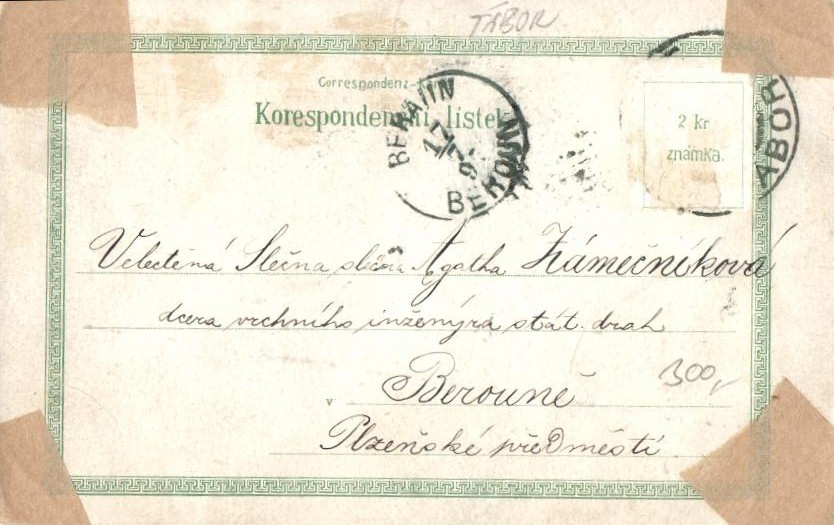 TÁBOR
Correspondenz-
Korespondenční lístek
2 kr
známka.
BERAUN
17
BEROUN
ÁBOR
Velectěná Slečna slečna Agatha Zámečníková
dcera vrchního inženýra stát. drah
300,-
v Berouně
Plzeňské předměstí